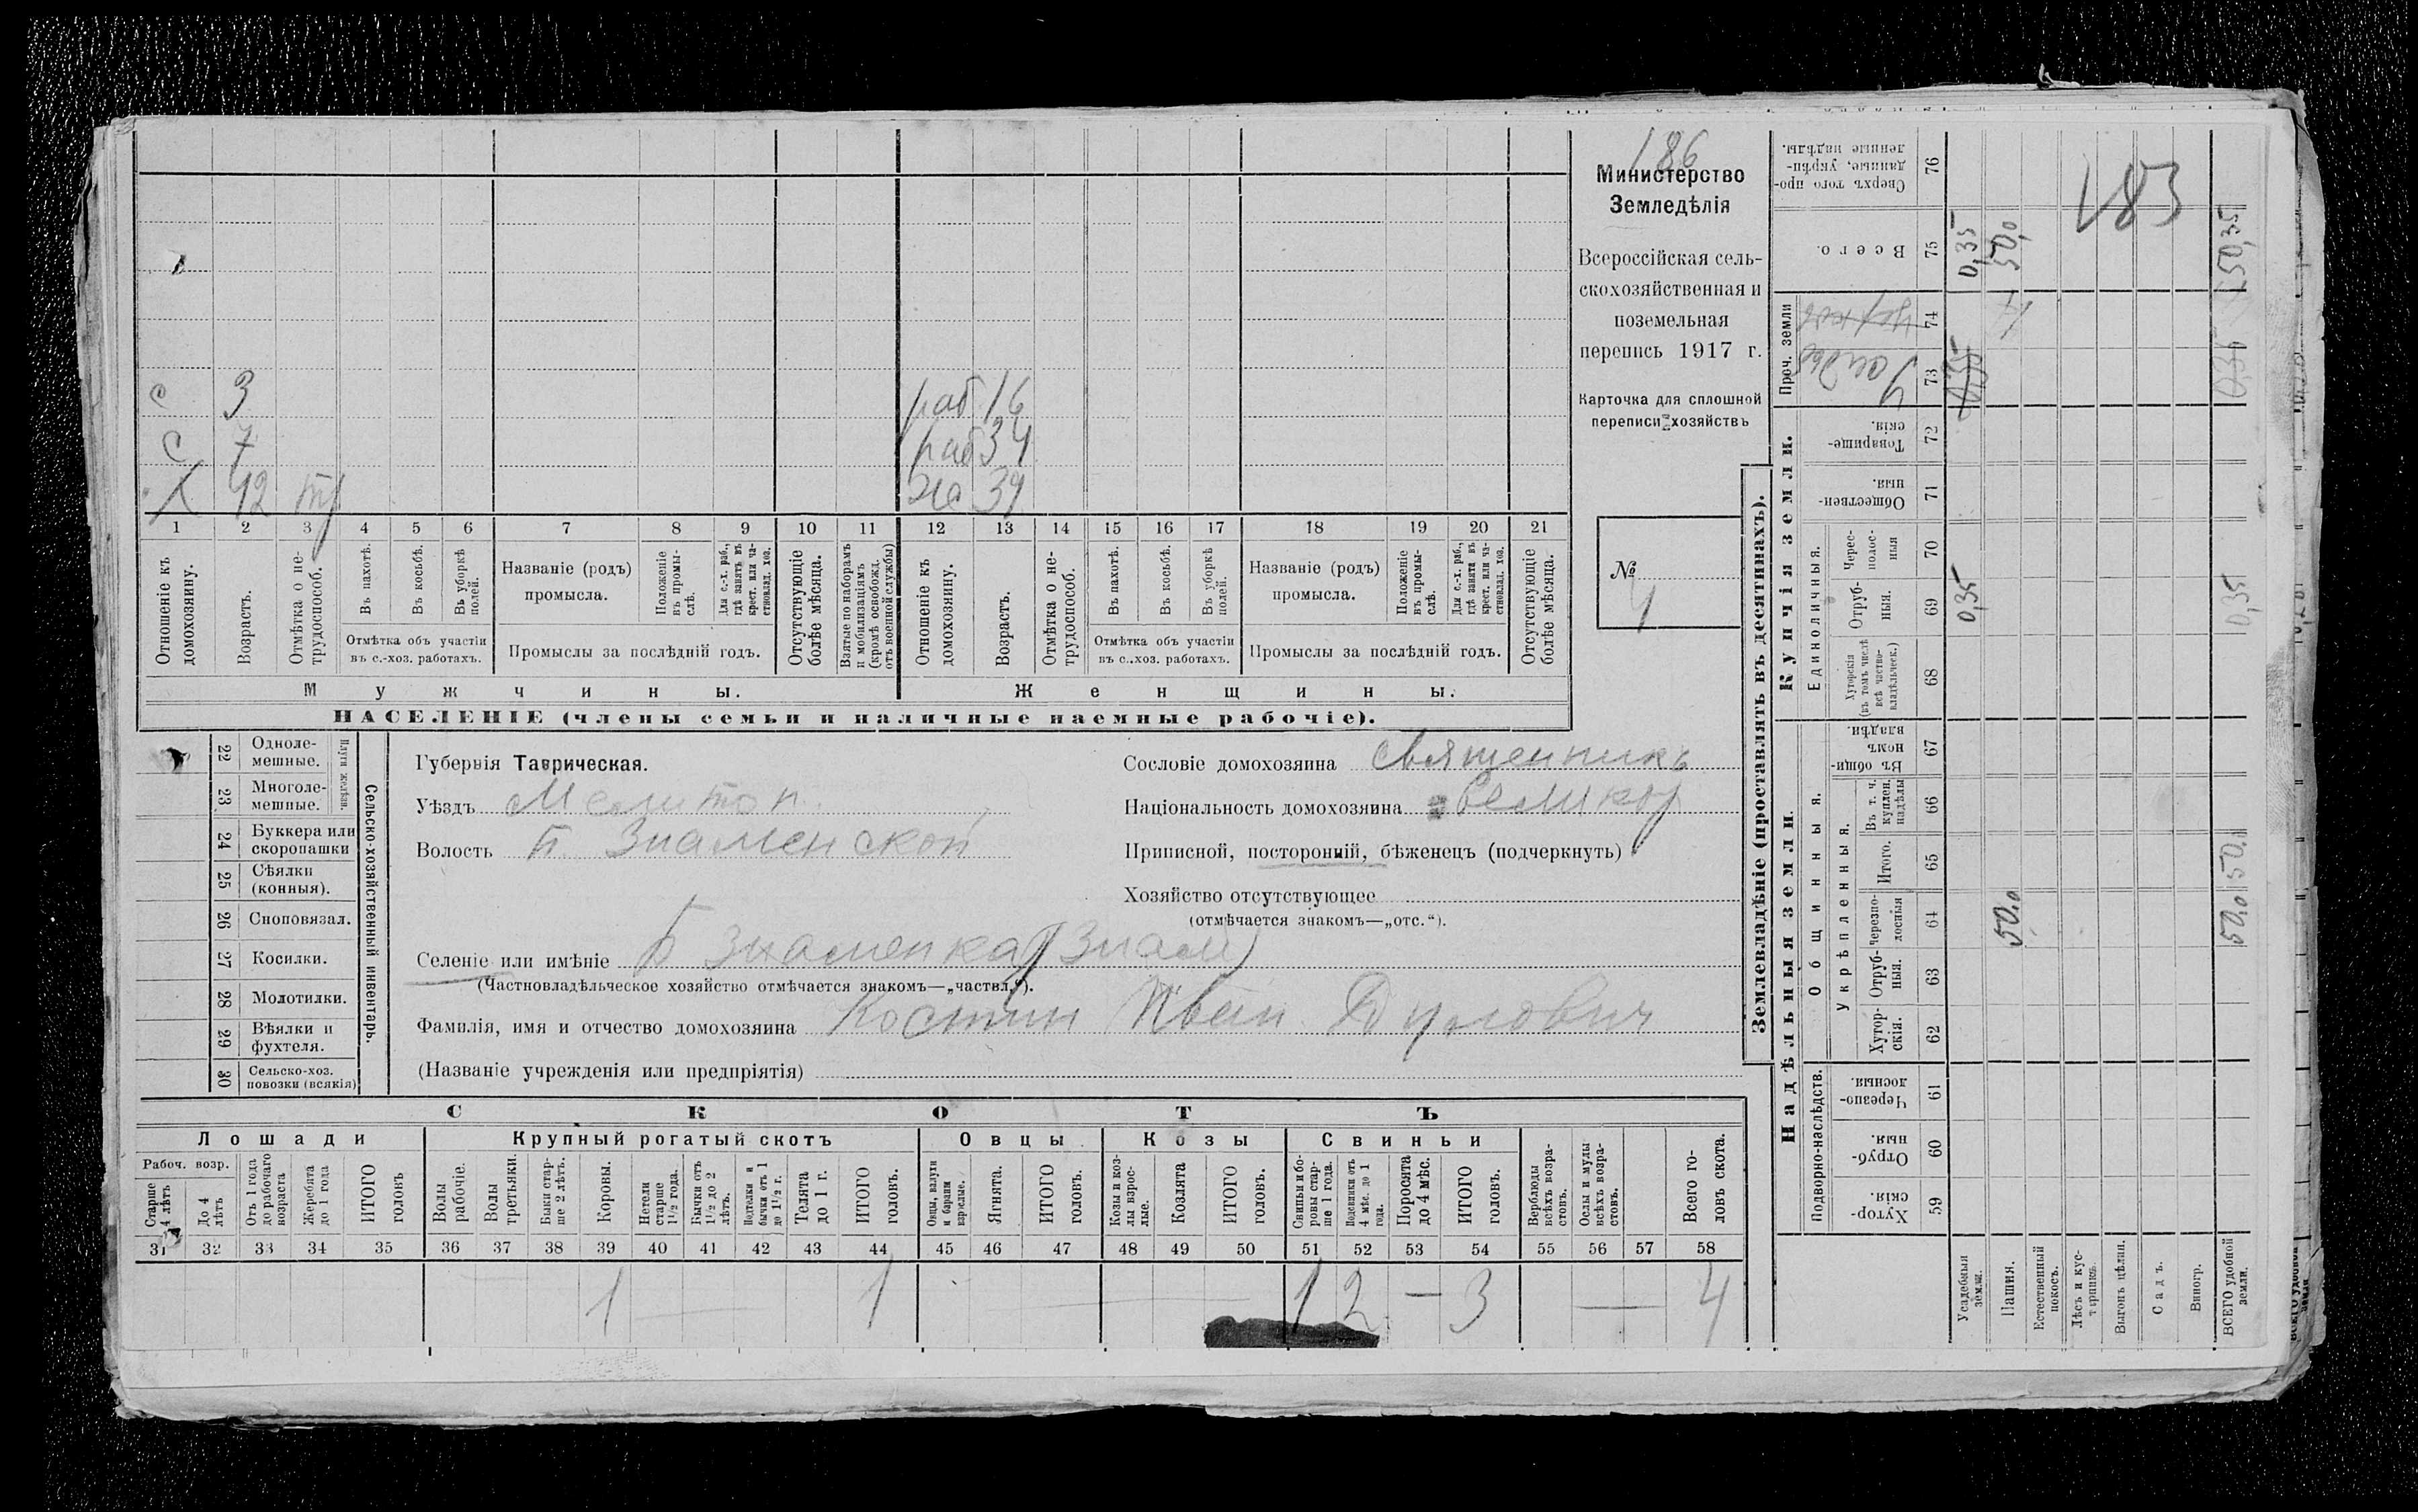 186
Министерство
Земледѣлія
Всероссійская сель-
скохозяйственная и
поземельная
перепись 1917 г.
Карточка для сплошной
переписи хозяйствъ
№
4
183
с 3 раб 16
с 7 раб 34
Х 42 же 39
1 2 3 4 5 6 7 8 9 10 11 12 13 14 15 16 17 18 19 20 21
Отношеніе къ домохозяину.
Возрастъ.
Отмѣтка о не-трудоспособ.
Въ пахотѣ.
Въ косьбѣ.
Въ уборкѣ полей.
Отмѣтка объ участіи
въ с.-хоз. работахъ.
Названіе (родъ)
промысла.
Положеніе въ промы-слѣ.
Для с.-х. раб., гдѣ занятъ въ крест. или ча-стновлад. хоз.
Промыслы за послѣдній годъ.
Отсутствующіе болѣе мѣсяца.
Взятые по наборамъ и мобилизаціямъ (кромѣ освобожд. отъ военной службы)
Отношеніе къ домохозяину.
Возрастъ.
Отмѣтка о не-трудоспособ.
Въ пахотѣ.
Въ косьбѣ.
Въ уборкѣ полей.
Отмѣтка объ участіи
въ с.-хоз. работахъ.
Названіе (родъ)
промысла.
Положеніе въ промы-слѣ.
Для с.-х. раб., гдѣ занята въ крест. или ча-стновлад. хоз.
Промыслы за послѣдній годъ.
Отсутствующіе болѣе мѣсяца.
Мужчины. Женщины.
НАСЕЛЕНІЕ (члены семьи и наличные наемные рабочіе).
22 Одноле-мешные.
23 Многоле-мешные.
24 Буккера или скоропашки
25 Сѣялки (конныя).
26 Сноповязал.
27 Косилки.
28 Молотилки.
29 Вѣялки и фухтеля.
30 Сельско-хоз. повозки (всякія)
Плуги желѣзн.
Сельско-хозяйственный инвентарь.
Губернія Таврическая.
Уѣздъ Мелитоп.
Волость Б. Знаменской
Сословіе домохозяина Священникъ
Національность домохозяина великор
Приписной, посторонній, бѣженецъ (подчеркнуть)
Хозяйство отсутствующее
(отмѣчается знакомъ—„отс.“).
Селеніе или имѣніе Б Знаменка (Знам)
(Частновладѣльческое хозяйство отмѣчается знакомъ—„частвл.“).
Фамилія, имя и отчество домохозяина Костин Иван
(Названіе учрежденія или предпріятія)
СКОТЪ
Лошади Крупный рогатый скотъ Овцы Козы Свиньи
Рабоч. возр.
Старше 4 лѣтъ
До 4 лѣтъ
Отъ 1 года до рабочаго возраста
Жеребята до 1 года
ИТОГО головъ
Волы рабочіе.
Волы третьяки.
Быки стар-ше 2 лѣтъ.
Коровы.
Нетели старше 1½ года.
Бычки отъ 1½ до 2 лѣтъ.
Подтелки и бычки отъ 1 до 1½ г.
Телята до 1 г.
ИТОГО головъ.
Овцы, валухи и бараны взрослые.
Ягнята.
ИТОГО головъ.
Козы и коз-лы взрос-лые.
Козлята
ИТОГО головъ.
Свиньи и бо-ровы стар-ше 1 года.
Подсвинки отъ 4 мѣс. до 1 года.
Поросята до 4 мѣс.
ИТОГО головъ.
Верблюды всѣхъ возра-стовъ.
Ослы и мулы всѣхъ возра-стовъ.
Всего го-ловъ скота.
31 32 33 34 35 36 37 38 39 40 41 42 43 44 45 46 47 48 49 50 51 52 53 54 55 56 57 58
1 — 1 — 1 2 — 3 — 4
Землевладѣніе (проставлять въ десятинахъ).
Купчія земли.
Надѣльныя земли.
Сверхъ того про-данные, укрѣп-ленные надѣлы. 76
Всего. 75 0,35 50,0 50,35
Проч. земли
церков 74
Усадьб 73 0,35 0,35
Товарище-скія. 72
Обществен-ныя. 71
Единоличныя.
Черес-полос-ныя 70
Отруб-ныя. 69 0,35 0,35
Хуторскія (въ томъ числѣ всѣ частно-владѣльческ.) 68
Общинныя.
Въ общи-номъ владѣн. 67
Укрѣпленныя.
Въ т. ч. куплен. надѣлы 66
Итого. 65 50,0
Черезпо-лосныя 64 50,0 50,0
Отруб-ныя. 63
Хутор-скія. 62
Подворно-наслѣдств.
Черезпо-лосныя. 61
Отруб-ныя. 60
Хутор-скія. 59
Усадебныя земли.
Пашня.
Естественный покосъ.
Лѣсъ и кус-тарникъ.
Выгонъ цѣлин.
Садъ.
Виногр.
ВСЕГО удобной земли.